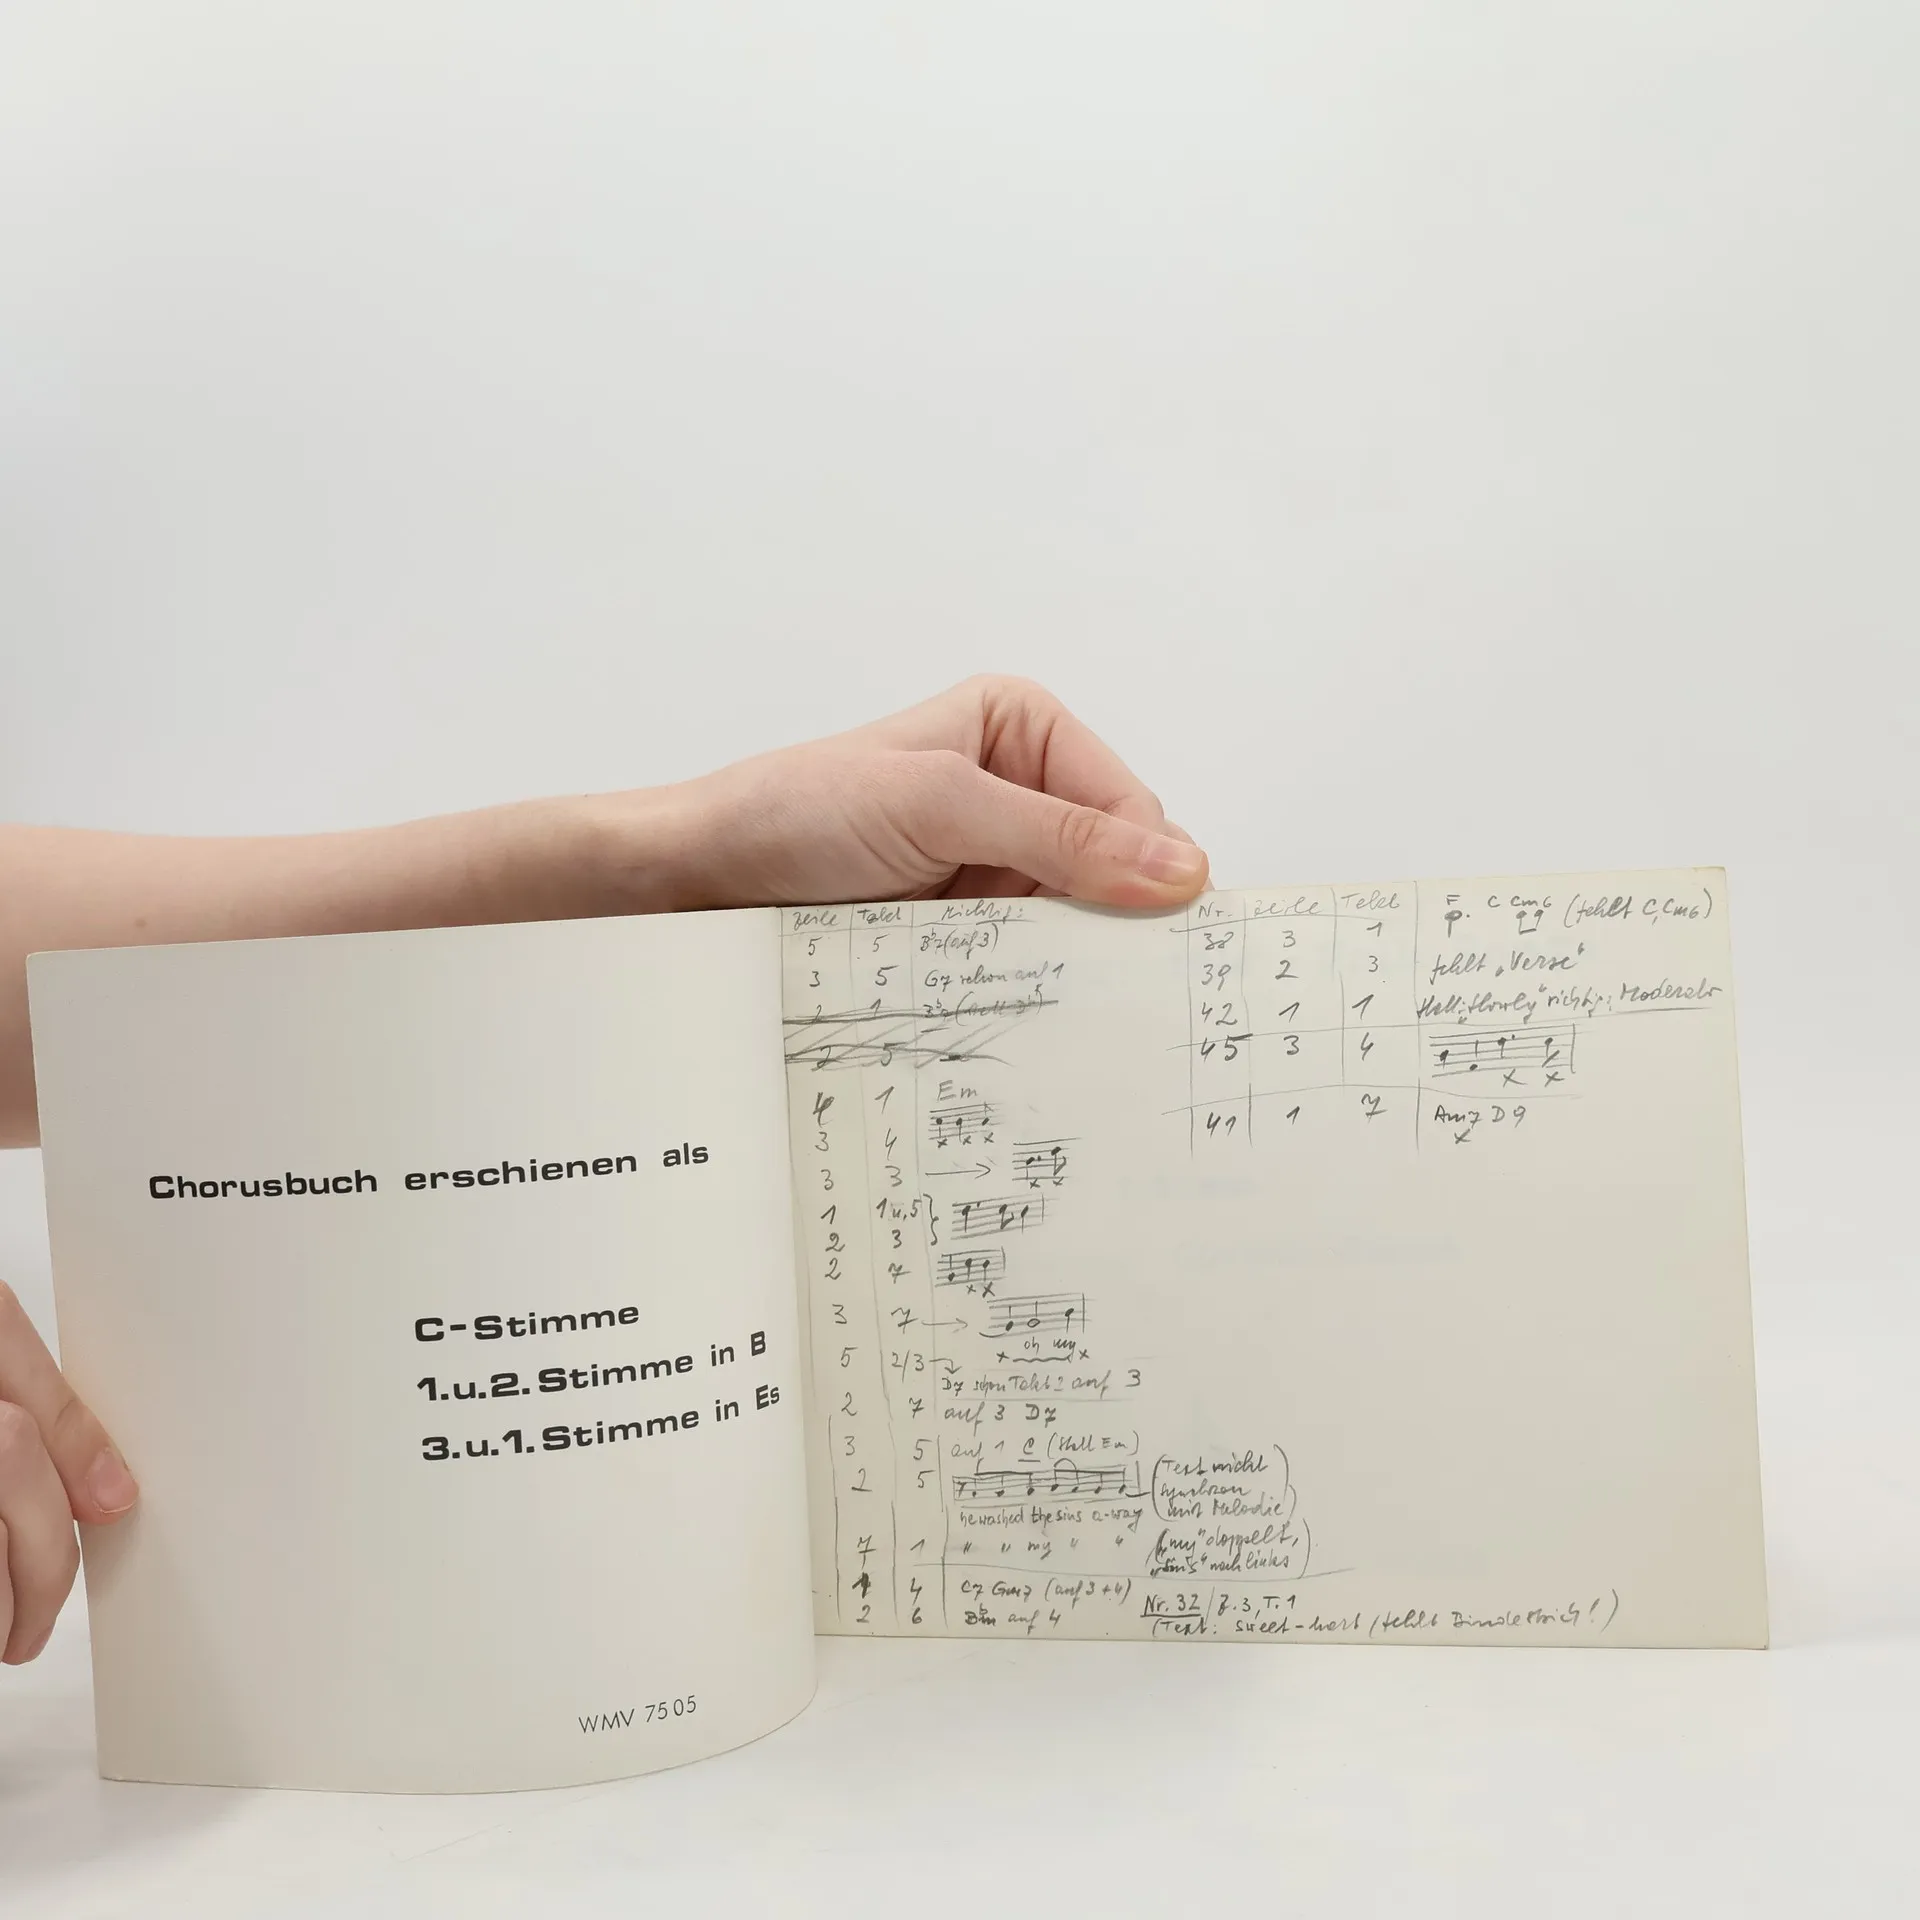 Chorusbuch erschienen als
C-Stimme
1.u.2.Stimme in B
3.u.1.Stimme in Es
WMV 7505
Zeile Takt Richtig:
5 5 B♭7 (auf 3)
3 5 G7 schon auf 1
2 1
2 5
4 1 Em
3 4
3 3
1 1 u. 5
2 3
2 7
3 7 oh my
5 2/3 D7 schon Takt 2 auf 3
2 7 auf 3 D7
3 5 auf 1 C (statt Em)
2 5 (Text nicht
synchron
mit Melodie)
he washed the sins a-way
7 1 " " my " " ("my" doppelt,
"sins" nach links)
1 4 C7 Gm7 (auf 3+4)
2 6 B♭m auf 4
Nr. 32 / Z.3, T.1
(Text: sweet-heart (fehlt Bindestrich!)
Nr. Zeile Takt
38 3 1 F C Cm6 (fehlt C, Cm6)
39 2 3 fehlt "Verse"
42 1 1 statt "Slowly" richtig: Moderato
45 3 4
41 1 7 Am7 D9